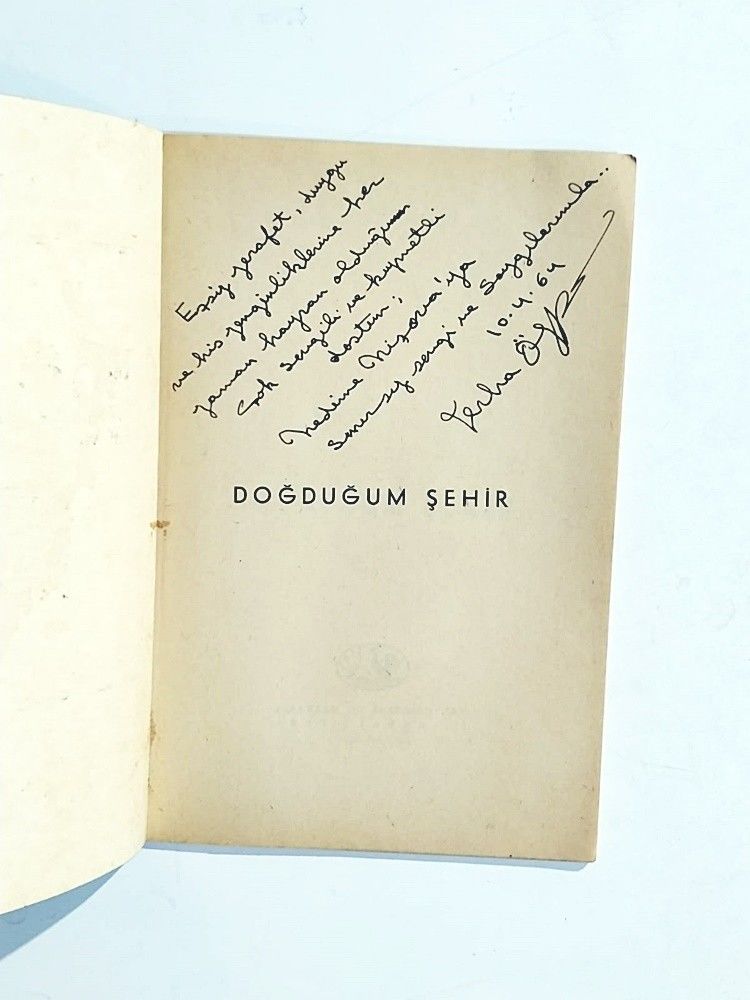 Eşsiz zerafet, duygu
ve his zenginliklerine her
zaman hayran olduğum
Çok sevgili ve kıymetli
dostum;
Nedime Nişova'ya
sınırsız sevgi ve Saygılarımla..
10.4.64
DOĞDUĞUM ŞEHİR